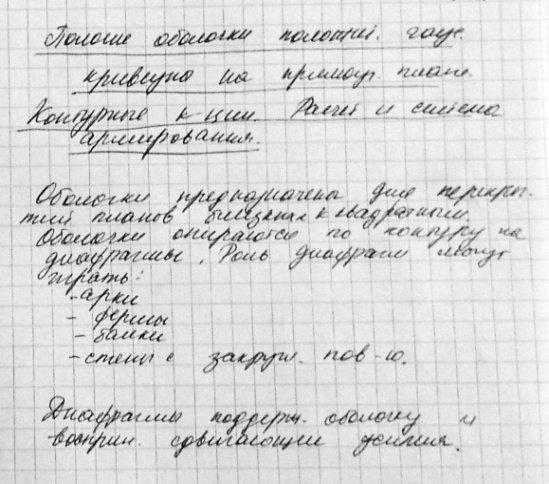 Пологие оболочки положит. гаус.
кривизны на прямоуг. плане.
Контурные к-ции. Расчет и система
армирования.
Оболочки предназначены для перекры-
тий планов близких к квадратным.
Оболочки опираются по контуру на
диафрагмы. Роль диафрагм могут
играть:
-арки
- фермы
- балки
-стены с закругл. пов-ю.
Диафрагмы поддерж. оболочку и
восприн. сдвигающие усилия.